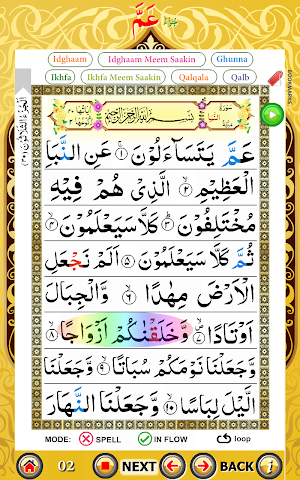 عَمَّ
Idghaam Idghaam Meem Saakin Ghunna
Ikhfa Ikhfa Meem Saakin Qalqala Qalb
سُوْرَةُ النَّبَاِ
بِسْمِ اللّٰهِ الرَّحْمٰنِ الرَّحِيْمِ
عَمَّ يَتَسَآءَلُوْنَ ۱ عَنِ النَّبَاِ
الْعَظِيْمِ ۲ الَّذِىْ هُمْ فِيْهِ
مُخْتَلِفُوْنَ ۳ كَلَّا سَيَعْلَمُوْنَ ۴
ثُمَّ كَلَّا سَيَعْلَمُوْنَ ۵ اَلَمْ نَجْعَلِ
الْاَرْضَ مِهٰدًا ۶ وَّالْجِبَالَ
اَوْتَادًا ۷ وَّخَلَقْنٰكُمْ اَزْوَاجًا ۸
وَّجَعَلْنَا نَوْمَكُمْ سُبَاتًا ۹ وَّجَعَلْنَا
الَّيْلَ لِبَاسًا ۱۰ وَّجَعَلْنَا النَّهَارَ
MODE: SPELL IN FLOW loop
02 NEXT BACK i